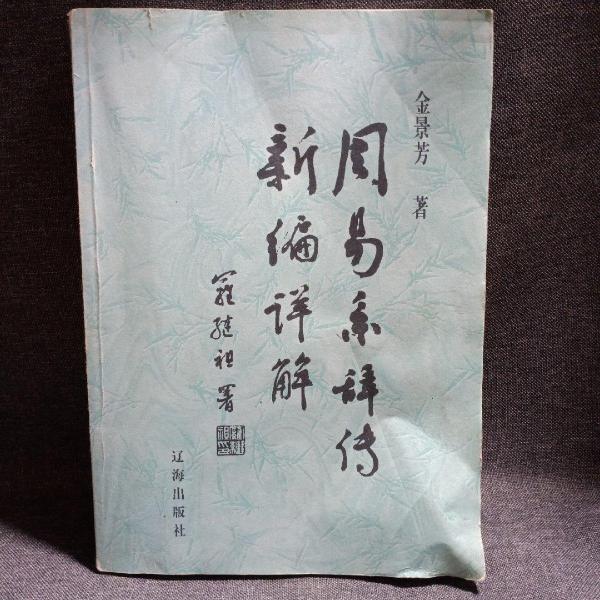 金景芳 著
周易系辞传
新编详解
罗继祖署
辽海出版社